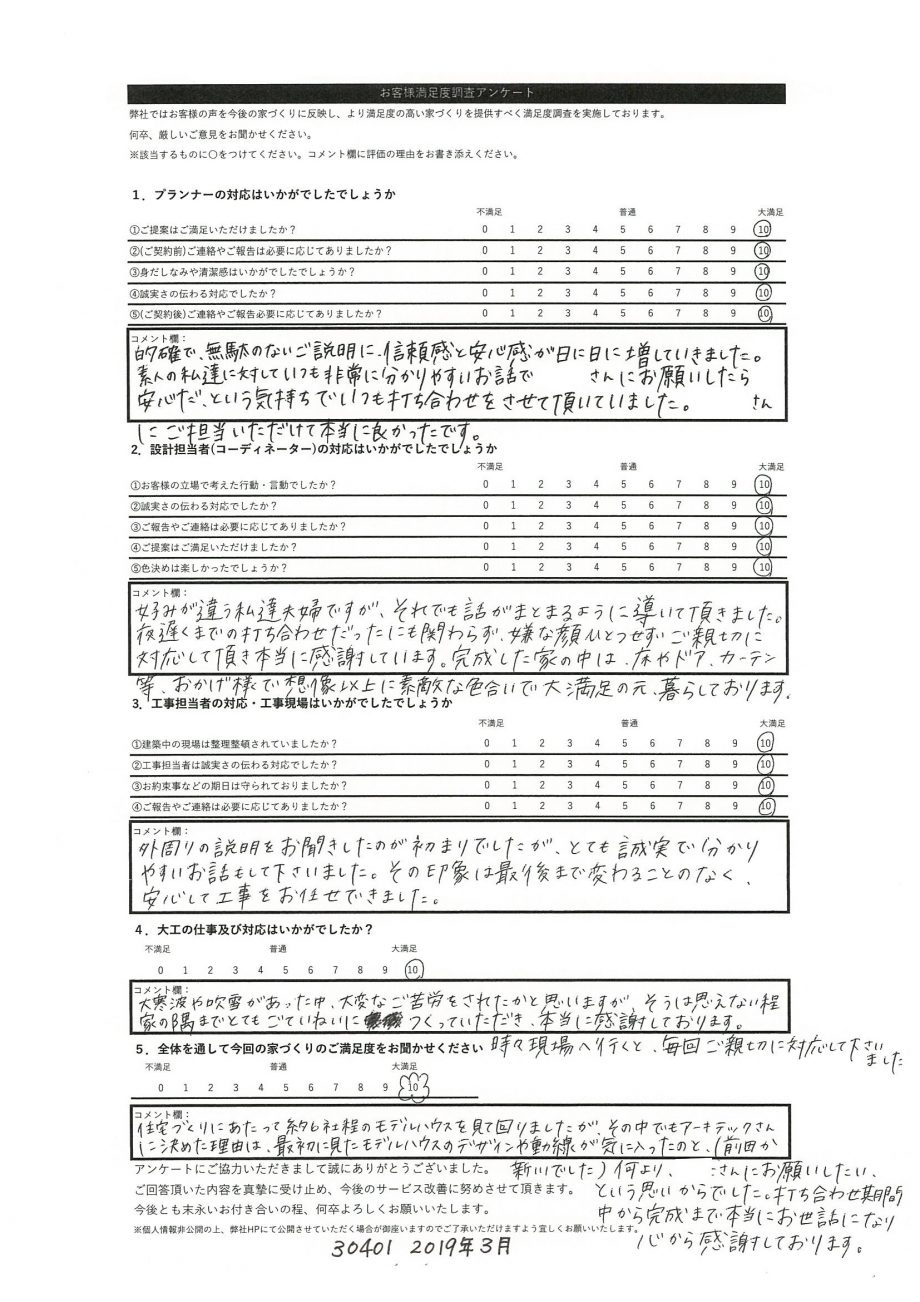 お客様満足度調査アンケート
弊社ではお客様の声を今後の家づくりに反映し、より満足度の高い家づくりを提供すべく満足度調査を実施しております。
何卒、厳しいご意見をお聞かせください。
※該当するものに〇をつけてください。コメント欄に評価の理由をお書き添えください。
1．プランナーの対応はいかがでしたでしょうか
不満足 普通 大満足
①ご提案はご満足いただけましたか？ 0 1 2 3 4 5 6 7 8 9 10
②(ご契約前)ご連絡やご報告は必要に応じてありましたか？ 0 1 2 3 4 5 6 7 8 9 10
③身だしなみや清潔感はいかがでしたでしょうか？ 0 1 2 3 4 5 6 7 8 9 10
④誠実さの伝わる対応でしたか？ 0 1 2 3 4 5 6 7 8 9 10
⑤(ご契約後)ご連絡やご報告必要に応じてありましたか？ 0 1 2 3 4 5 6 7 8 9 10
コメント欄：
的確で、無駄のないご説明に、信頼感と安心感が日に日に増していきました。
素人の私達に対していつも非常に分かりやすいお話で さんにお願いしたら
安心だ、という気持ちでいつも打ち合わせをさせて頂いていました。 さん
にご担当いただけて本当に良かったです。
2．設計担当者(コーディネーター)の対応はいかがでしたでしょうか
不満足 普通 大満足
①お客様の立場で考えた行動・言動でしたか？ 0 1 2 3 4 5 6 7 8 9 10
②誠実さの伝わる対応でしたか？ 0 1 2 3 4 5 6 7 8 9 10
③ご報告やご連絡は必要に応じてありましたか？ 0 1 2 3 4 5 6 7 8 9 10
④ご提案はご満足いただけましたか？ 0 1 2 3 4 5 6 7 8 9 10
⑤色決めは楽しかったでしょうか？ 0 1 2 3 4 5 6 7 8 9 10
コメント欄：
好みが違う私達夫婦ですが、それでも話がまとまるように導いて頂きました。
夜遅くまでの打ち合わせだったにも関わらず、嫌な顔ひとつせずご親切に
対応して頂き本当に感謝しています。完成した家の中は、床やドア、カーテン
等、おかげ様で想像以上に素敵な色合いで大満足の元、暮らしております。
3．工事担当者の対応・工事現場はいかがでしたでしょうか
不満足 普通 大満足
①建築中の現場は整理整頓されていましたか？ 0 1 2 3 4 5 6 7 8 9 10
②工事担当者は誠実さの伝わる対応でしたか？ 0 1 2 3 4 5 6 7 8 9 10
③お約束事などの期日は守られておりましたか？ 0 1 2 3 4 5 6 7 8 9 10
④ご報告やご連絡は必要に応じてありましたか？ 0 1 2 3 4 5 6 7 8 9 10
コメント欄：
外周りの説明をお聞きしたのが初まりでしたが、とても誠実で分かり
やすいお話もして下さいました。その印象は最後まで変わることのなく、
安心して工事をお任せできました。
4．大工の仕事及び対応はいかがでしたか？
不満足 普通 大満足
0 1 2 3 4 5 6 7 8 9 10
コメント欄：
大寒波や吹雪があった中、大変なご苦労をされたかと思いますが、そうは思えない程
家の隅までとてもごていねいに つくっていただき、本当に感謝しております。
5．全体を通して今回の家づくりのご満足度をお聞かせください 時々現場へ行くと、毎回ご親切に対応して下さい
ました
不満足 普通 大満足
0 1 2 3 4 5 6 7 8 9 10
コメント欄：
住宅づくりにあたって約6社程のモデルハウスを見て回りましたが、その中でもアーキテックさん
に決めた理由は、最初に見たモデルハウスのデザインや動線が気に入ったのと、(前田か
アンケートにご協力いただきまして誠にありがとうございました。 新川でした)何より、 さんにお願いしたい、
ご回答頂いた内容を真摯に受け止め、今後のサービス改善に努めさせて頂きます。 という思いからでした。打ち合わせ期間
今後とも末永いお付き合いの程、何卒よろしくお願いいたします。 中から完成まで本当にお世話になり
※個人情報非公開の上、弊社HPにて公開させていただく場合が御座いますのでご了承いただけますよう宜しくお願いいたします。 心から感謝しております。
30401 2019年3月